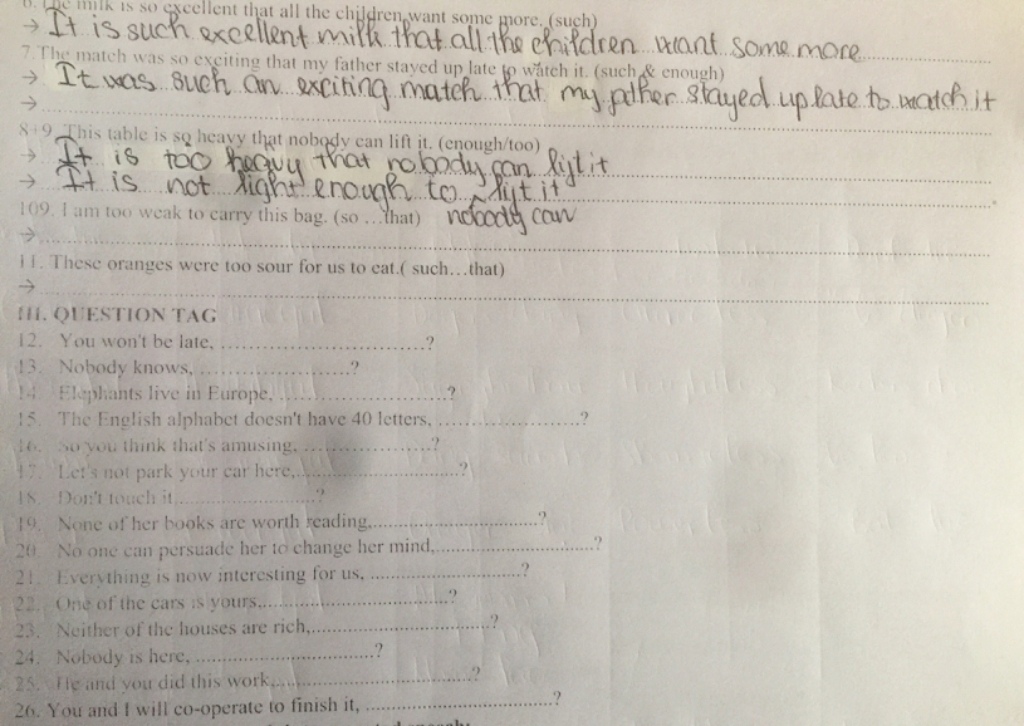 6. The milk is so excellent that all the children want some more. (such)
→ It is such excellent milk that all the children want some more
7. The match was so exciting that my father stayed up late to watch it. (such & enough)
→ It was such an exciting match that my father stayed up late to watch it
→
8+9. This table is so heavy that nobody can lift it. (enough/too)
→ It is too heavy that nobody can lift it
→ It is not light enough to lift it
109. I am too weak to carry this bag. (so …that) nobody can
→
11. These oranges were too sour for us to eat.( such…that)
→
III. QUESTION TAG
12. You won't be late, ..............................?
13. Nobody knows, ......................?
14. Elephants live in Europe, .........................?
15. The English alphabet doesn't have 40 letters, .....................?
16. So you think that's amusing, ...................?
17. Let's not park your car here,........................?
18. Don't touch it,.....................?
19. None of her books are worth reading,.........................?
20. No one can persuade her to change her mind,.......................?
21. Everything is now interesting for us, ......................?
22. One of the cars is yours,...........................?
23. Neither of the houses are rich,..........................?
24. Nobody is here, ..........................?
25. He and you did this work,.............................?
26. You and I will co-operate to finish it, ............................?